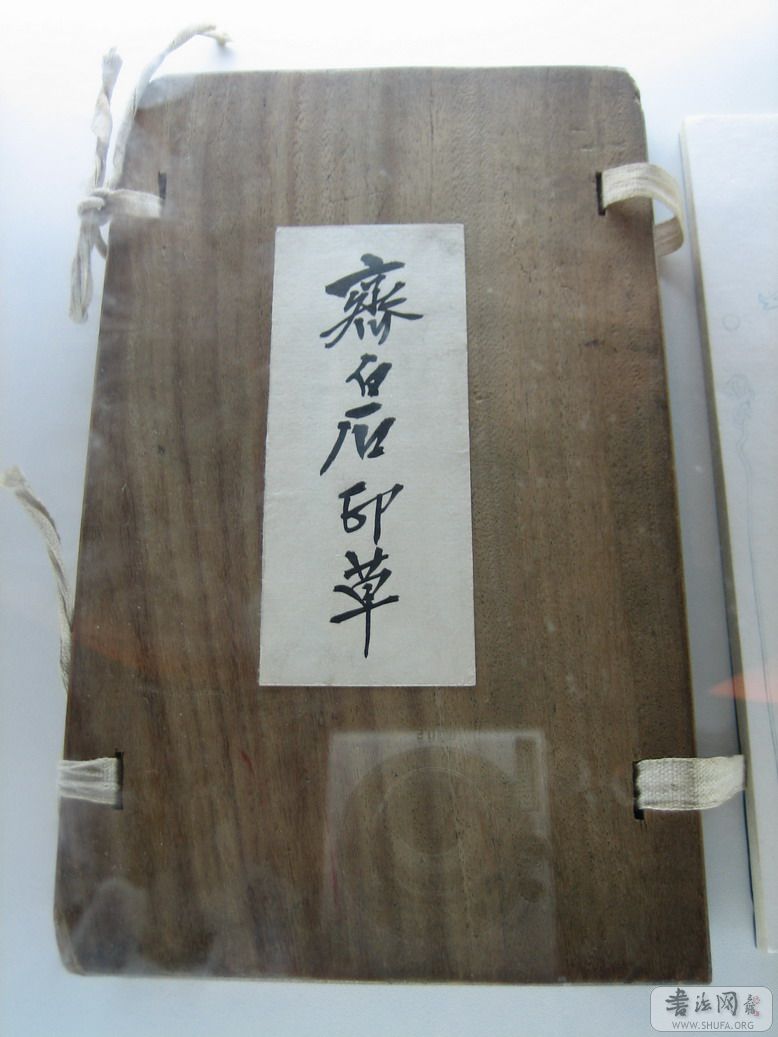 齊白石印草
书法网
WWW.SHUFA.ORG